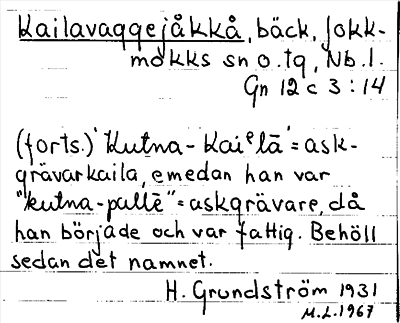 Kailavaggejåkkå, bäck, Jokk-
mokks sn o. tg, Nb. l.
Gn 12 c 3 : 14
(forts.) 'Kutna-Kaiᵉlā' = ask-
grävarkaila, emedan han var
"kutna-pallē" = askgrävare, då
han började och var fattig. Behöll
sedan det namnet.
H. Grundström 1931
M.L. 1967